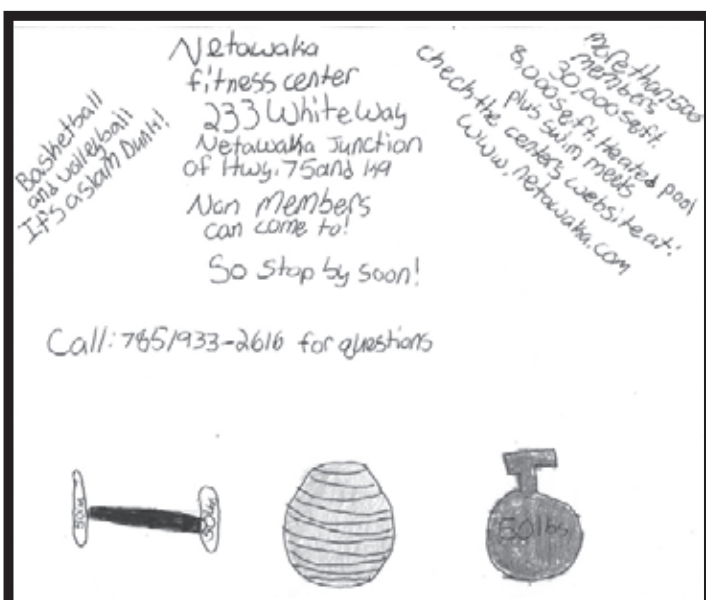 Basketball
and volleyball
It's a slam Dunk!
Netawaka
fitness center
233 White Way
Netawaka Junction
of Hwy. 75 and K9
Non Members
can come to!
So stop by soon!
more than 500
members
30,000 sq.ft.
8,000 sq.ft. Heated pool
plus swim meets
check the centers website at:
www.netawaka.com
Call: 785/933-2616 for questions
50lbs